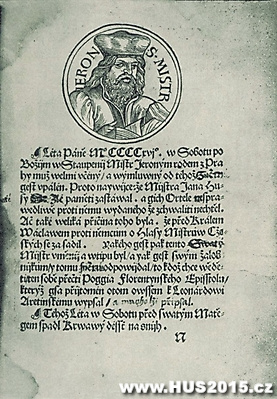 IERON S·MISTR
¶ Leta Páně MCCCCxvj°. w Sobotu po
Božijm w Staupenij Mistr Jeronym rodem z Pra
hy muž welmi včený / a wýmluwný od téhož
gest vpálen. Proto naywijce: že Mistra Jana Hu
sy Ač paměti zastáwal. a gich Ortele nespra
wedliwé proti němu wydaného že zchwáliti nechtěl.
Ač také weliká příčina toho byla: že před Králem
Wácławem proti němcům o Hlasy Mistrůw Cze
ských se za sadil. yakéhož gest pak tento Swatý
Mistr vmienij a wtipu byl / a yak gest swým žalob
nijkům / y tomu odpowijdal / to kdož chce wědě
ti ten sobě přečti Poggia Florentynského Episstolu /
kteryž gsa přijtomen otom owssem k Leonardowi
Aretinskému wypsal /
¶ Tehož Léta w Sobotu před swatým Matě
gem spadl Krwawý déssť na snijh.
www.HUS2015.cz